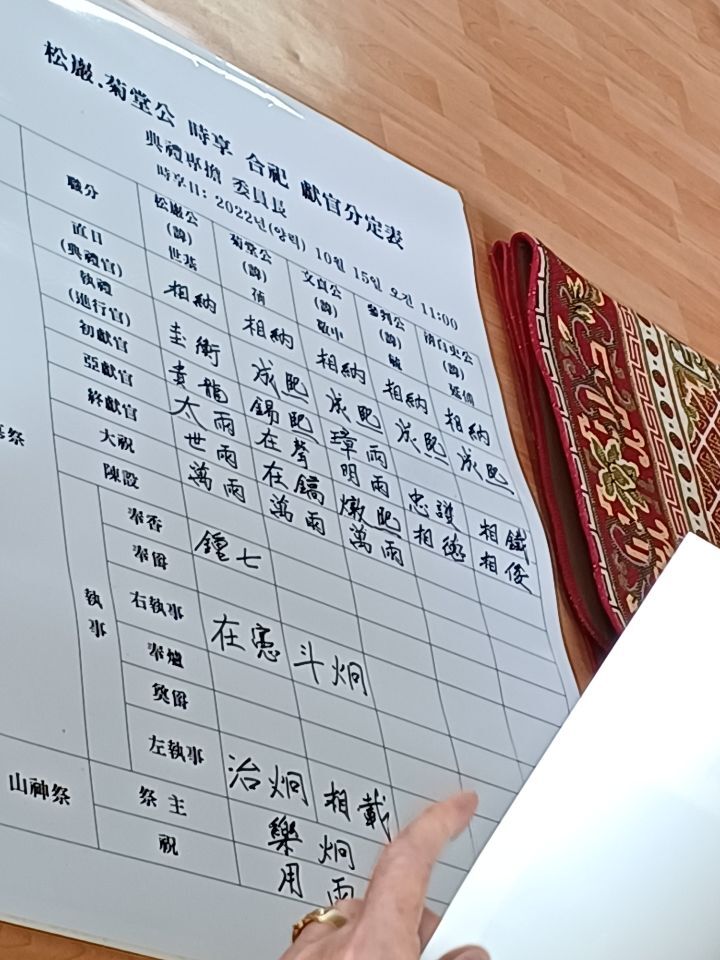 松巖.菊堂公 時享 合祀 獻官分定表
典禮專擔 委員長
時享日: 2022년(양력) 10월 15일 오전 11:00
職分 松巖公 菊堂公 文貞公 參判公 清白吏公
(諱) (諱) (諱) (諱) (諱)
世基 敬中
直日 相納 相納 相納 相納 相納
(典禮官)
執禮 圭衛 成熙 成熙 成熙 成熙
(進行官)
初獻官 貴龍 錫熙 璋雨 忠護 相鐵
亞獻官 太雨 在聲 明雨 相德 相俊
終獻官 世雨 在鎬 燉熙
大祝 萬雨 萬雨 萬雨
陳設 鍾七
祭
執事
奉香
奉爵
右執事 在憲 斗炯
奉爐
奠爵
左執事 治炯 相載
山神祭
祭主 樂炯
祝 用雨